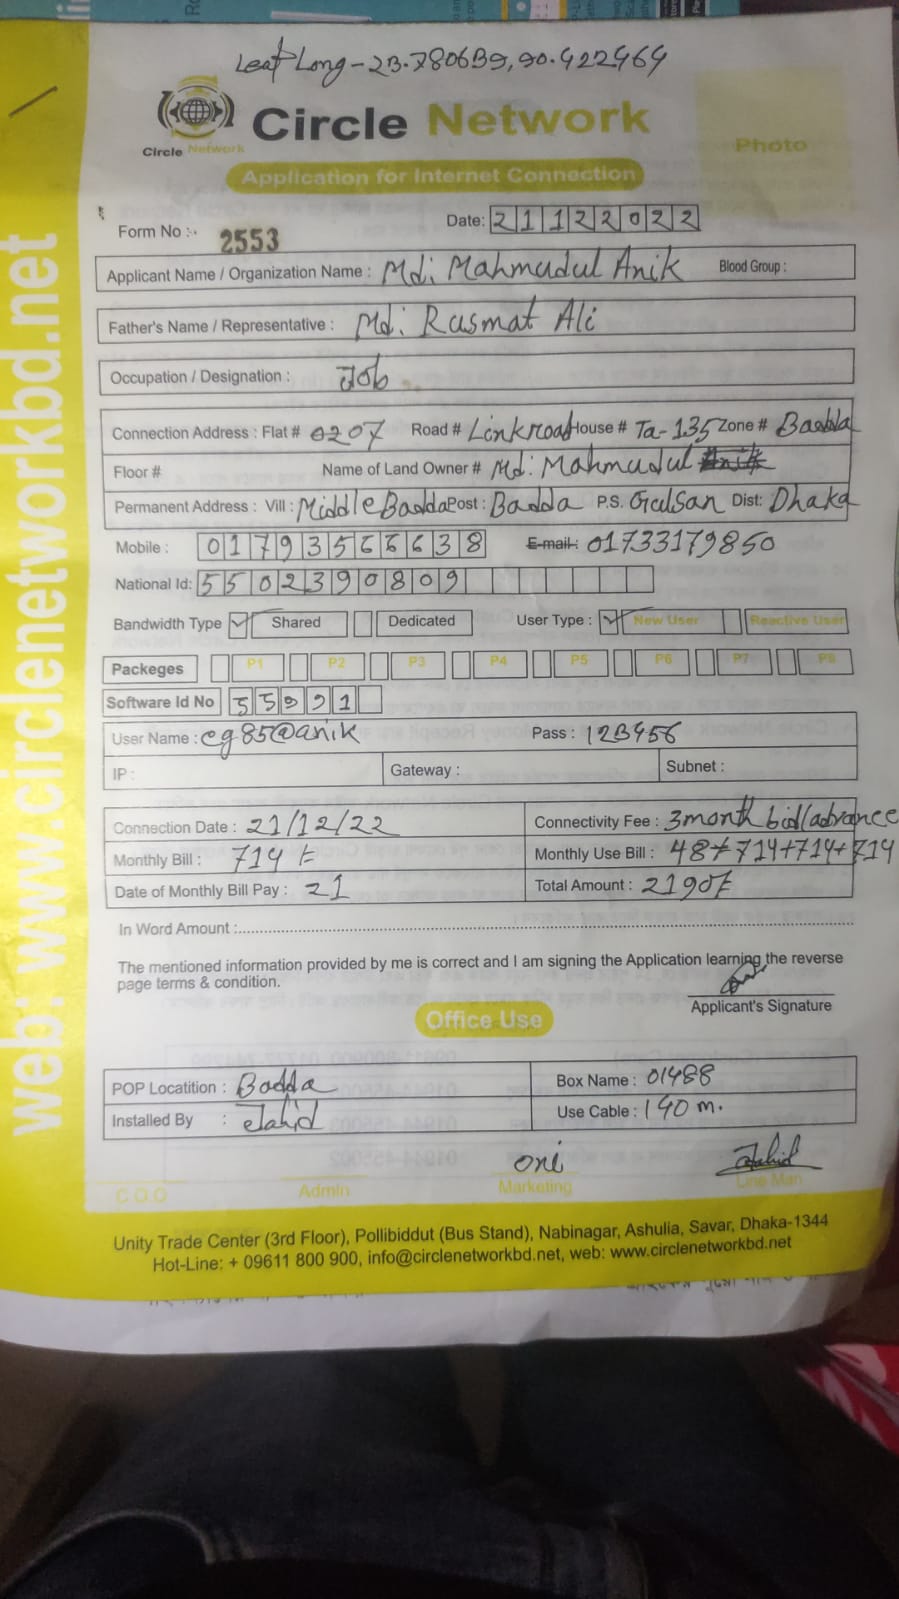 Leat Long - 23.780639, 90.422464
Circle Network
Circle Network
Photo
Application for Internet Connection
Form No : 2553 Date: 21122022
Applicant Name / Organization Name : Md: Mahmudul Anik Blood Group :
Father's Name / Representative : Md: Rasmat Ali
Occupation / Designation : Job
Connection Address : Flat # 0207 Road # Linkroad House # Ta-135 Zone # Badda
Floor # Name of Land Owner # Md: Mahmudul
Permanent Address : Vill : Middle Badda Post : Badda P.S. Gulsan Dist: Dhaka
Mobile : 01793566638 E-mail: 01733179850
National Id: 5502390809
Bandwidth Type Shared Dedicated User Type : New User Reactive User
Packeges P1 P2 P3 P4 P5 P6 P7 P8
Software Id No 55991
User Name : cg85@anik Pass : 123456
IP : Gateway : Subnet :
Connection Date : 21/12/22 Connectivity Fee : 3month bill advance
Monthly Bill : 714/= Monthly Use Bill : 48+714+714+714
Date of Monthly Bill Pay : 21 Total Amount : 2190/=
In Word Amount :
The mentioned information provided by me is correct and I am signing the Application learning the reverse
page terms & condition.
Applicant's Signature
Office Use
POP Locatition : Badda Box Name : 01488
Installed By : Jahid Use Cable : 140 m.
oni Jahid
C O O Admin Marketing Line Man
Unity Trade Center (3rd Floor), Pollibiddut (Bus Stand), Nabinagar, Ashulia, Savar, Dhaka-1344
Hot-Line: + 09611 800 900, info@circlenetworkbd.net, web: www.circlenetworkbd.net
web: www.circlenetworkbd.net